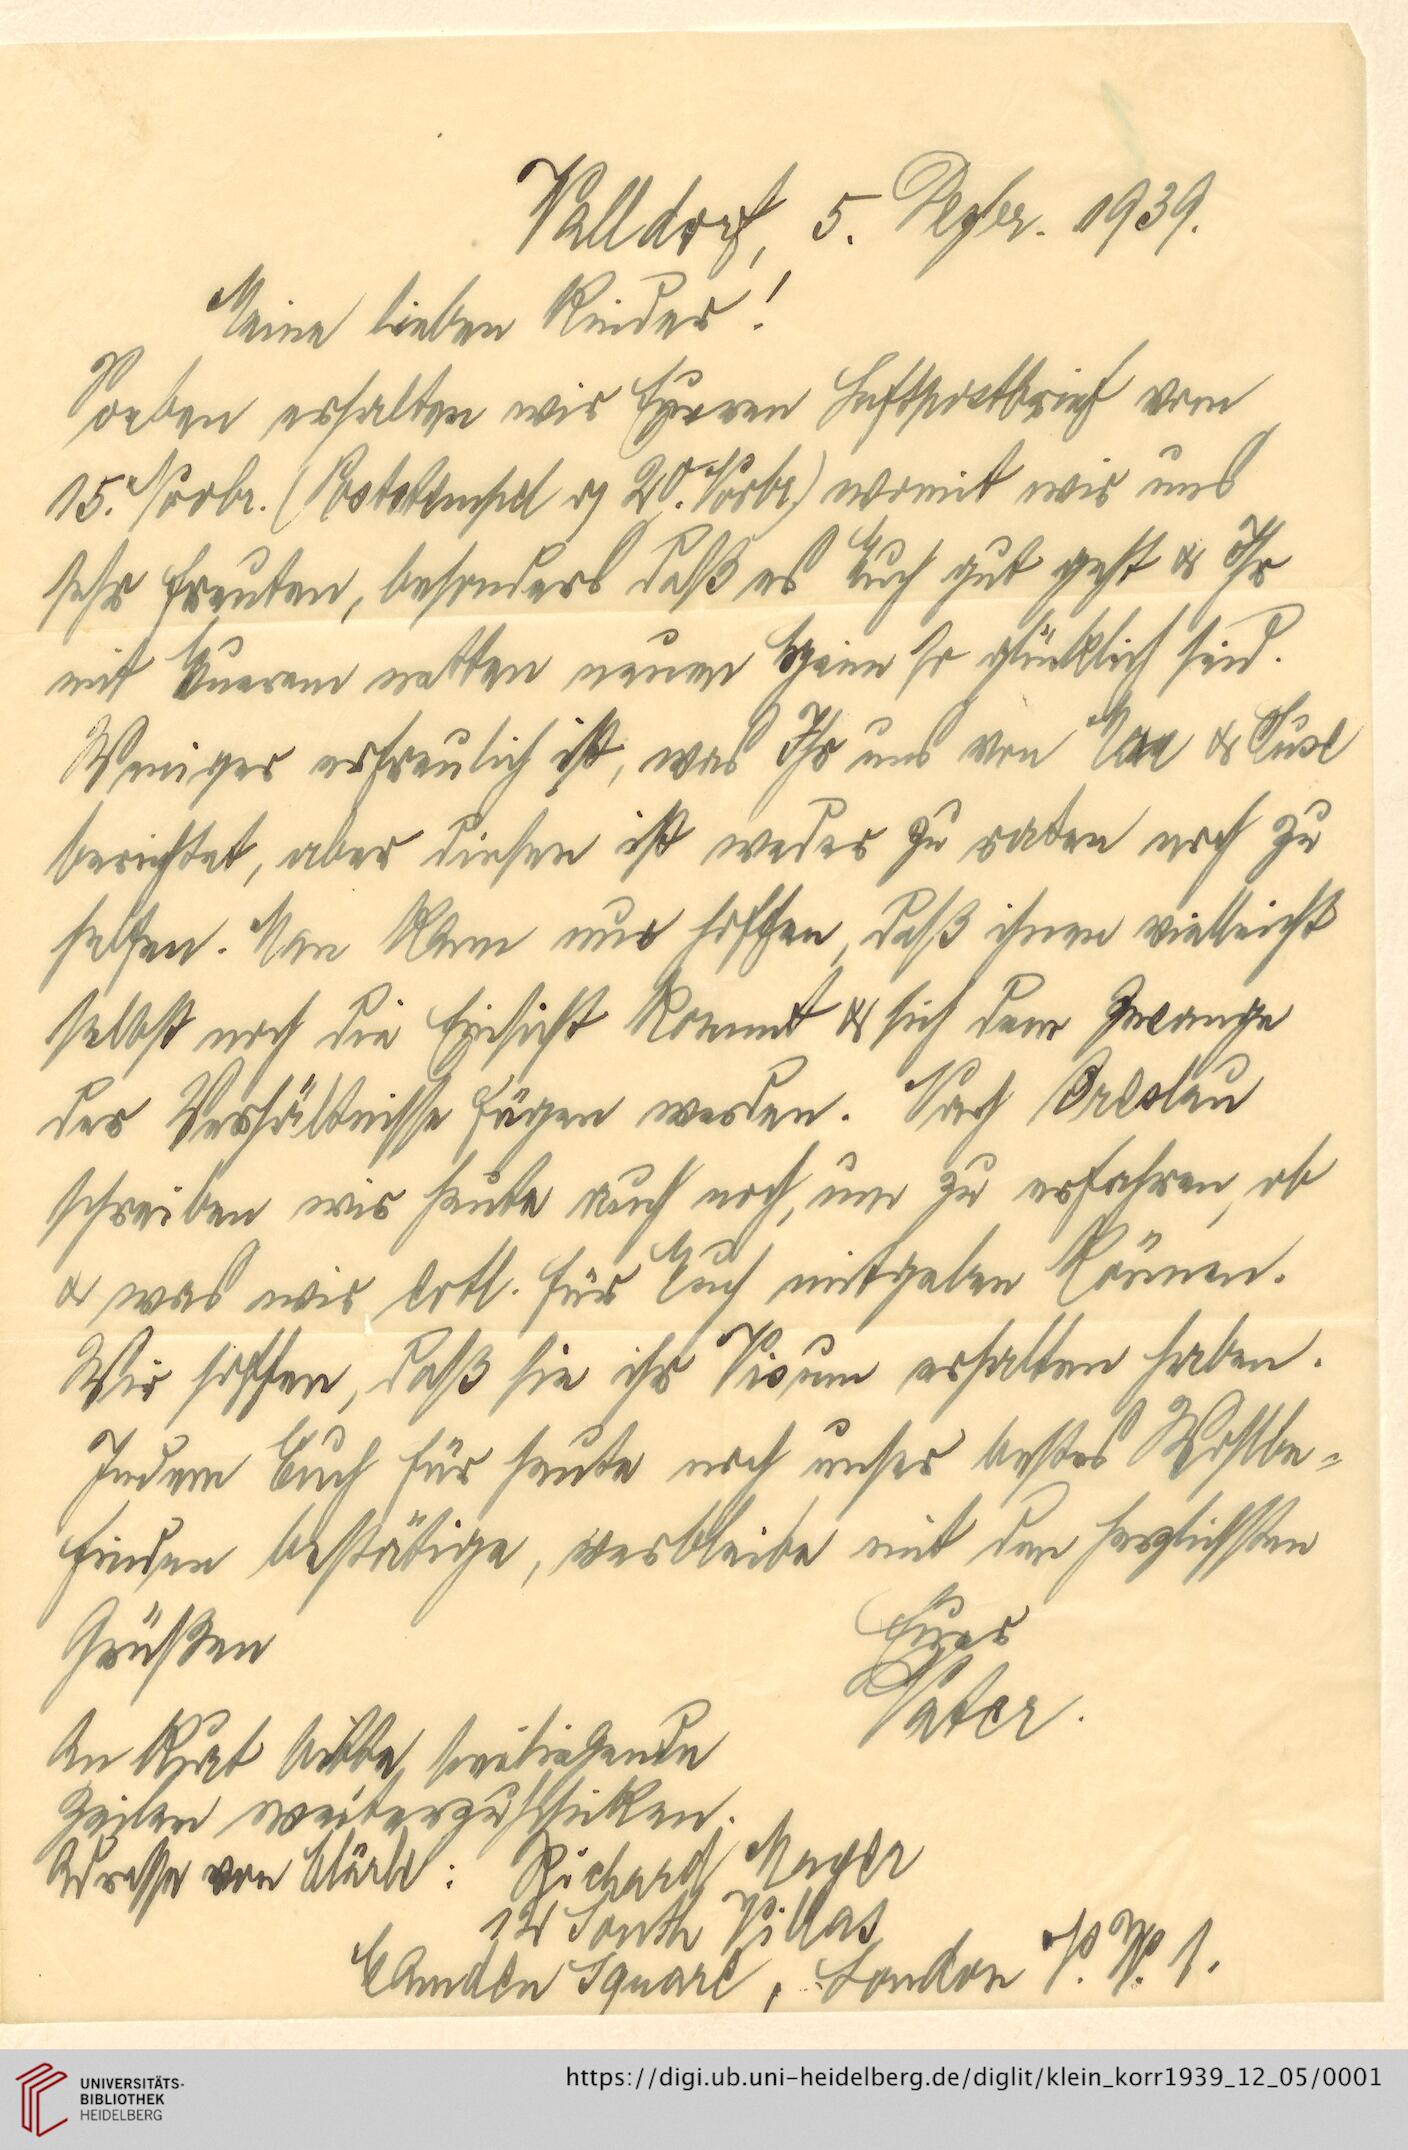 Walldorf, 5. Dezbr. 1939.
Meine lieben Kinder!
Soeben erhalten wir Eueren Luftpostbrief vom
15. Novbr. (Poststempel v 20. Novbr.) womit wir uns
sehr freuten, besonders daß es Euch gut geht & Ihr
mit Euerem netten neuen Heim so glücklich seid.
Weniger erfreulich ist, was Ihr uns von &
berichtet, aber diesen ist weder zu raten noch zu
helfen. Man kann nur hoffen, daß ihnen vielleicht
selbst noch die Einsicht kommt & sich dem Zwange
der Verhältnisse fügen werden. Nach Breslau
schreiben wir heute auch noch, um zu erfahren, ob
& was wir evtl. für Euch mitgeben können.
Wir hoffen, daß sie ihr Visum erhalten haben.
Indem Euch für heute noch unser bestes Wohlbe-
finden bestätige, verbleibe mit den herzlichsten
Grüßen
Euer
Vater.
An Kurt bitte beiliegende
Zeilen weiterzuschicken.
Adresse von Klärle: Richard Mayer
12 South Villas
Camden Square, London N.W. 1.
UNIVERSITÄTS-
BIBLIOTHEK
HEIDELBERG
https://digi.ub.uni-heidelberg.de/diglit/klein_korr1939_12_05/0001